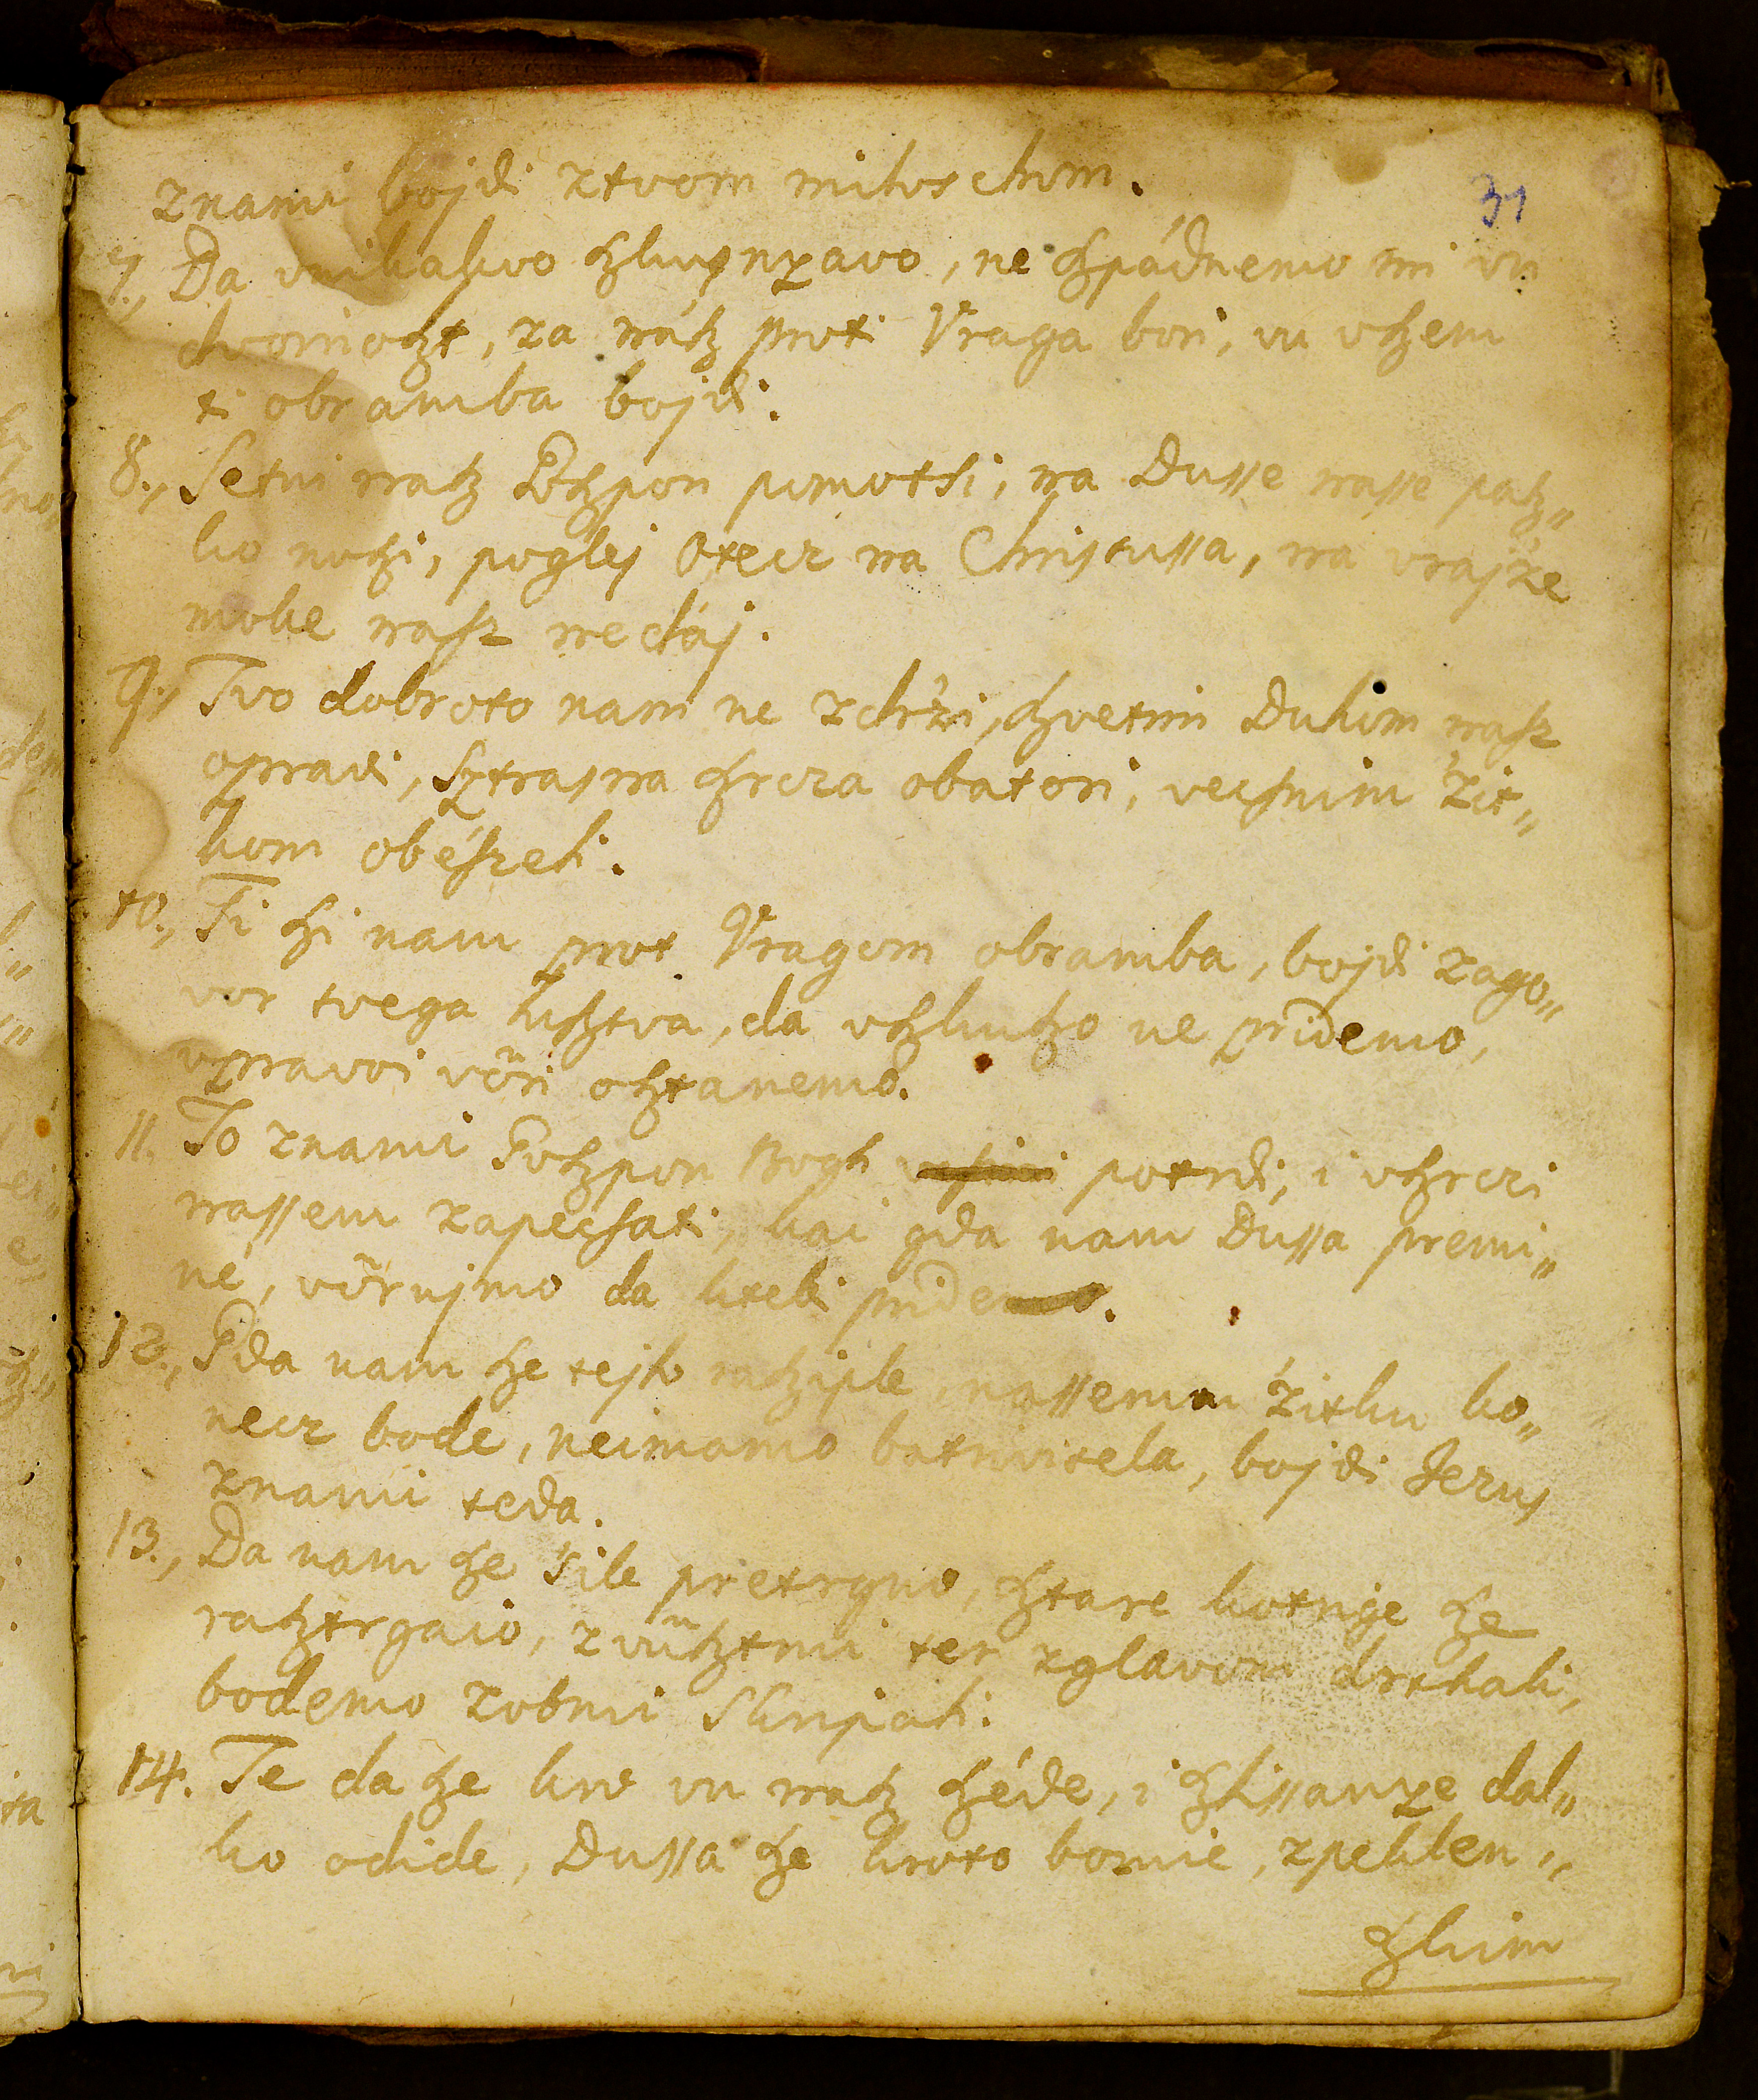 znami bojdi ztvom miloschom.
31
7., Da vnikakvo szkuſnyavo, ne szpádnemo mi vu
dvomioszt, za nász proti Vraga bori, vu vszem
ti obramba bojdi.
8., Setui nasz Goszpon pomotsi, na Dusse nasse pasz„
ko noszi, poglej Otecz na Christussa, na vrajʼze
moke nasz ne dáj.
9., Tvo dobroto nam ne zdrʼzi, szvetim Duhom nasz
opravi, Sztrasna szrcza obatori, vecsnim ʼzit„
kom obészeli.
10., Ti szi nam prot Vragom obramba, bojdi zago„
vor tvega lusztva, da vszkuszo ne pridemo,
vpravoi vöri osztanemo.
11. To znami Goszpon Bogh potrdi, i vszrczi
nassem zapecsati, kai gda nam Dussa premi„
né, vörujmo da ktebi pride
12., Gda nam sze tejlo rasziple, nassemu ʼzitku ko„
necz bode, neimamo batrivitela, bojdi Jezus
znami teda.
13., Da nam sze ʼsile pretrgno, sztare kotrige sze
rasztrgaio, zvüsztmi ter zglavom drkhali,
bodemo zobmi Skripali.
14. Te da sze krv vu nasz széde, i szlissanye dal„
ko odide, Dussa sze kroto bomie, zpeklen„
szkim